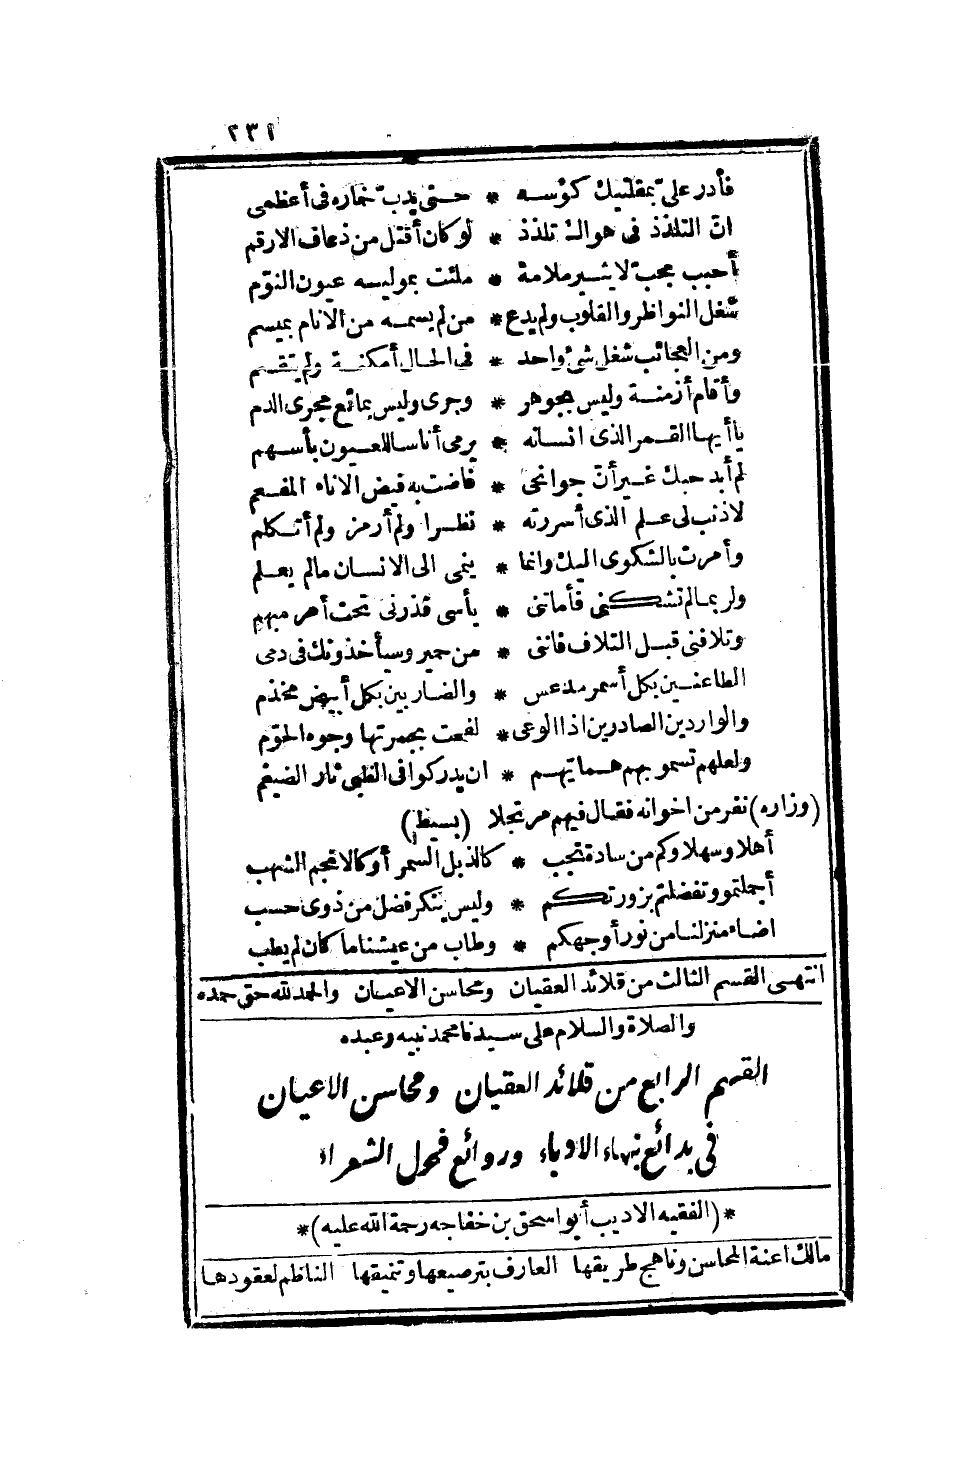 ٢٣١
فأدر علىّ بمقلتيك كؤسه * حتى يدبّ خماره فى أعظمى
انّ التلذذ فى هواك تلذذ * لو كان أقتل من ذعاف الارقم
أحبب بحبّ لا يثير ملامة * ملئت بموليسه عيون النوّم
شغل النواظر والقلوب ولم يدع * من لم يسمه من الانام بميسم
ومن العجائب شغل شئ واحد * فى الحال أمكنة ولم يتقسم
وأقام أزمنة وليس بجوهر * وجرى وليس بمائع مجرى الدم
يا أيها القمر الذى انسانه * يرمى أناسا للعيون بأسهم
لم أبد حبك غير أنّ جوانحى * فاضت به فيض الاناء المفعم
لا ذنب لى علم الذى أسررته * نظرا ولم أرمز ولم أتكلم
وأمرت بالشكوى اليك وانما * ينمى الى الانسان مالم يعلم
ولربما لم تشكنى فأماتنى * يأسى فذرنى تحت أمر مبهم
وتلافنى قبل التلاف فاننى * من حمير وسيأخذونك فى دمى
الطاعنين بكل أسمر مدعس * والضاربين بكل أبيض مخذم
والواردين الصادرين اذا الوغى * لفعت بجمرتها وجوه الحوّم
ولعلهم تسمو بهم همّاتهم * ان يدركوا فى الظبى ثار الضيغم
(وزاره) نفر من اخوانه فقال فيهم مرتجلا (بسيط)
أهلا وسهلا وكم من سادة نجب * كالذبل السمر أو كالانجم الشهب
أجملتمو وتفضلتم بزورتكم * وليس ينكر فضل من ذوى حسب
اضاء منزلنا من نور أوجهكم * وطاب من عيشنا ما كان لم يطب
انتهى القسم الثالث من قلائد العقيان ومحاسن الاعيان والحمد لله حق حمده
والصلاة والسلام على سيدنا محمد نبيه وعبده
القسم الرابع من قلائد العقيان ومحاسن الاعيان
فى بدائع نبهاء الادباء وروائع فحول الشعراء
*(الفقيه الاديب أبو اسحق بن خفاجه رحمة الله عليه)*
مالك اعنة المحاسن وناهج طريقها العارف بترصيعها وتنميقها الناظم لعقودها